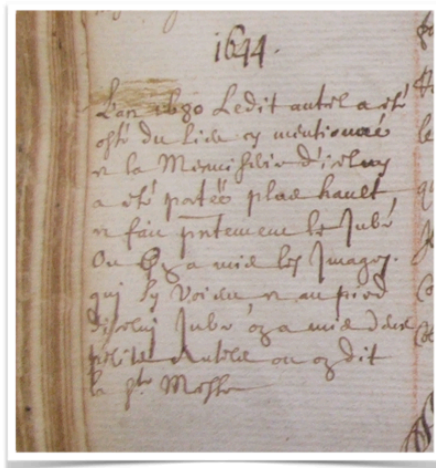 1644.
L'an 1680 Ledit autel a esté
osté du lieu cy mentionné
et la Menuiserie d'iceluy
a esté portée plus hault
et fait pntement le Jubé
Ou on a mis les Images
qui sy voient et au pied
diceluy Jubé on a mis deux
petits Autels ou on dit
la Ste Messe